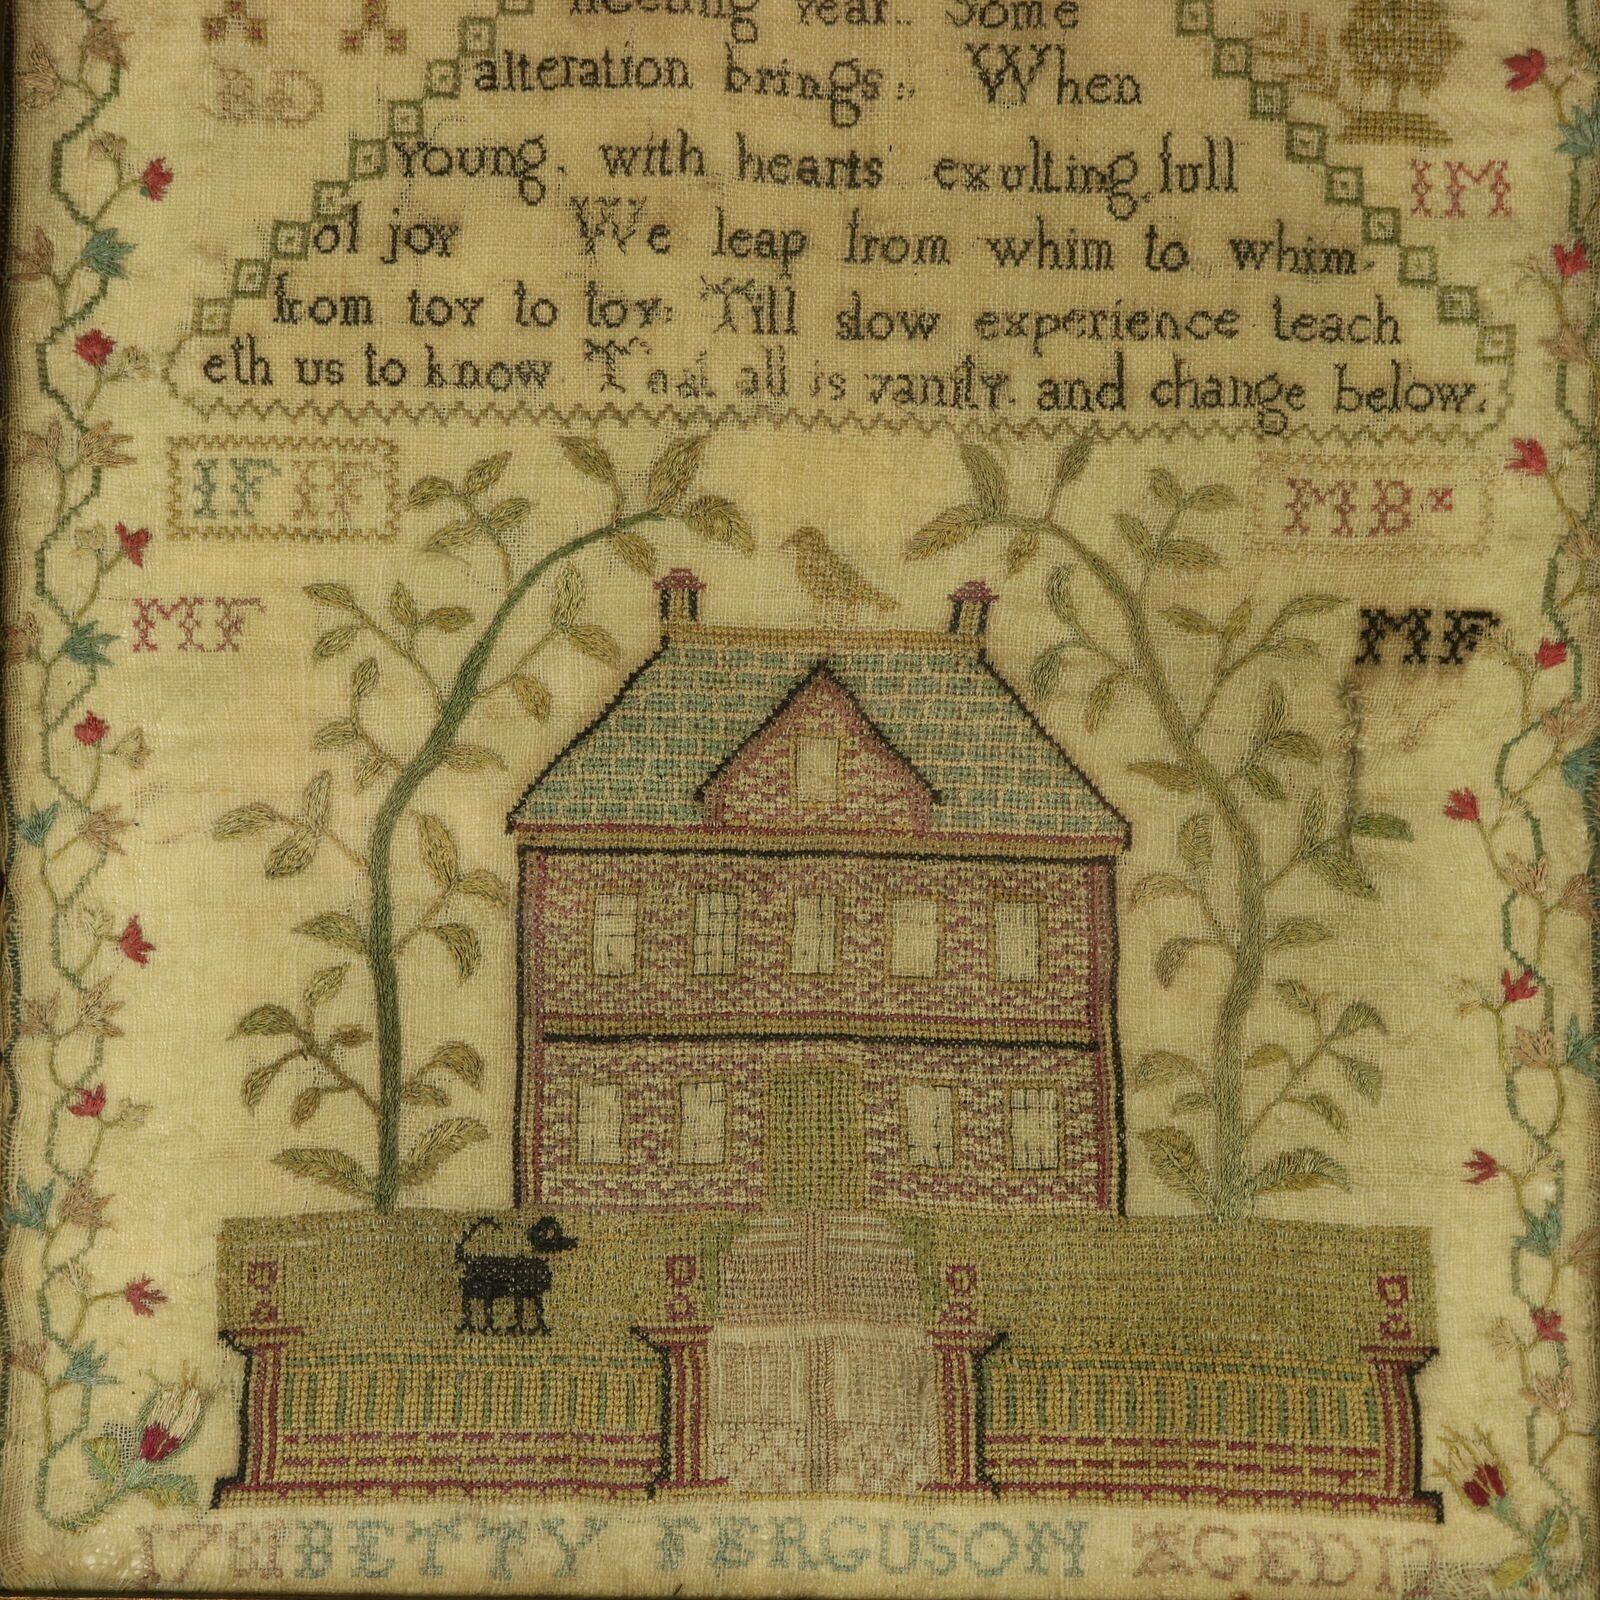 fleeting year.. Some
alteration brings. When
Young. with hearts exulting full
of joy We leap from whim to whim.
from toy to toy: Till slow experience teach
eth us to know That all is vanity. and change below.
IM
IF IF
MB
MF
MF
BETTY FERGUSON AGED 12